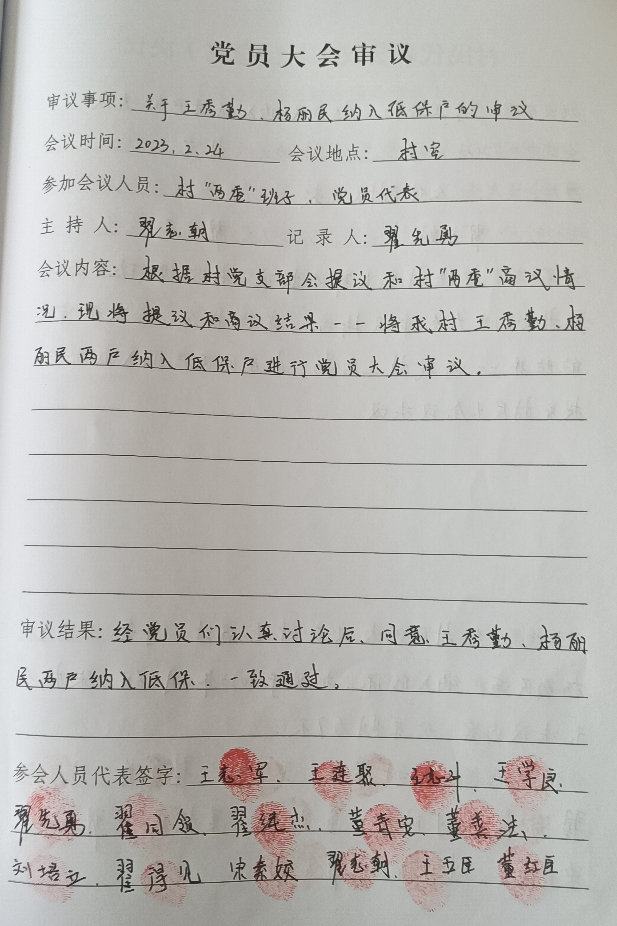 党员大会审议
审议事项：关于王秀勤、杨丽民纳入低保户的审议
会议时间：2023.2.24 会议地点：村室
参加会议人员：村“两委”班子、党员代表
主持人：翟志朝 记录人：翟先勇
会议内容：根据村党支部会提议和村“两委”商议情
况，现将提议和商议结果--将我村王秀勤、杨
丽民两户纳入低保户进行党员大会审议。
审议结果：经党员们认真讨论后、同意王秀勤、杨丽
民两户纳入低保、一致通过。
参会人员代表签字：王先军、王连聚、王学良、
翟先勇、翟同领、翟纯杰、董青安、董 法、
刘培立、翟得见 宋素姣 翟志朝、王五臣 董红臣